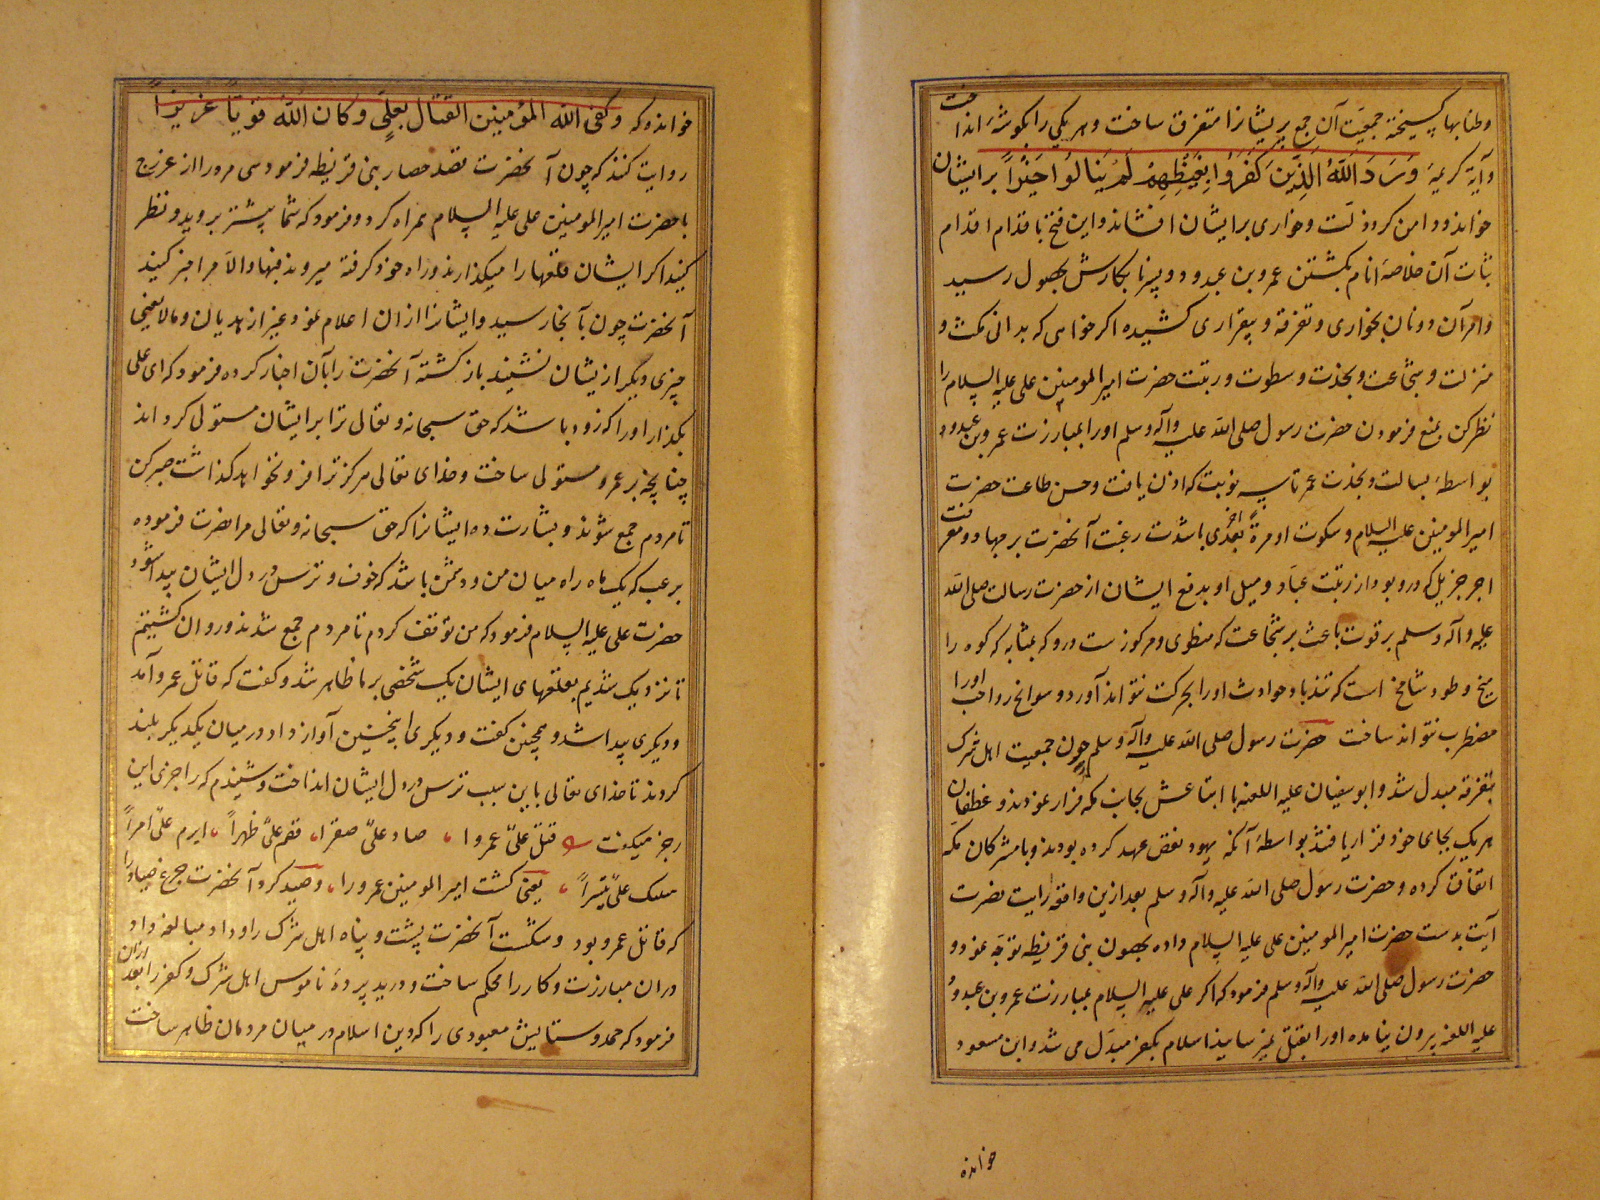 وطنابها گسیخته جمعیت آن جمع پریشانرا متفرق ساخت وهریکی را بگوشهٔ انداخت
وآیهٔ کریمه وَرَدَ اللّٰهُ الَّذِینَ کَفَرُوا بِغَیْظِهِمْ لَمْ یَنَالُوا خَیْرًا برایشان
خواند ودامن کرد ذلت وخواری برایشان افشاند واین فتح باقدام اقدام
ثبات آن خلاصهٔ انام بکشتن عمرو بن عبدود وپسر نابکارش بحصول رسید
وامر آن دونان بخواری وتفرقه وبیقراری کشیده اکر خواهی که بدانی مکنت و
منزلت وشجاعت ونجدت وسطوت ورتبت حضرت امیرالمومنین علی علیه السلام را
نظر کن بمنع فرمودن حضرت رسول صلی الله علیه وآله وسلم اورا بمبارزت عمرو بن عبدود
بواسطهٔ بسالت ونجدت عمر تا سه نوبت که اذن یافت وحسن طاعت حضرت
امیرالمومنین علیه السلام وسکوت او مرة بعد اخری باشدت رغبت آنحضرت برجهاد ومعرفت
اجر جزیل که درو بود از رتبت عباد ومیل او بدفع ایشان از حضرت رسالت صلی الله
علیه وآله وسلم برقوت باعث برشجاعت که منطوی ومرکوزست درو که بمثابه که کوه را
سخ وطود شامخ است که تندباد حوادث اورا بحرکت نتواند آورد وسوانح رواجب اورا
مضطرب نتواند ساخت حضرت رسول صلی الله علیه وآله وسلم چون جمعیت اهل شرک
بتفرقه مبدل شد وابوسفیان علیه اللعنه با اتباعش بجانب مکه فرار نمودند وغطفان
هریک بجای خود فرار یافتند بواسطهٔ آنکه یهود نقض عهد کرده بودند وبا مشرکان مکه
اتفاق کرده وحضرت رسول صلی الله علیه وآله وسلم بعد ازین واقعه رایت نصرت
آیت بدست حضرت امیرالمومنین علی علیه السلام داده بحصون بنی قریظه توجه نمود و
حضرت رسول صلی الله علیه وآله وسلم فرمود که اکر علی علیه السلام بمبارزت عمرو بن عبدود
علیه اللعنه برون نیامده اورا بقتل نمیرسانید اسلام بکفر مبدل می شد وابن مسعود
خوانده
خواندو که وکفی الله المؤمنین القتال بعلی وکان الله قویًّا عزیزًا
روایت کنند که چون آنحضرت قصد حصار بنی قریظه فرمود سی مرد را از خزرج
با حضرت امیرالمومنین علی علیه السلام همراه کرد وفرمود که شما پیشتر بروید ونظر
کنید اکر ایشان قلعها را میکذارند وراه خود کرفته میروند فبها والا مرا خبر کنید
آنحضرت چون بآنجا رسید وایشانرا از ان اعلام نمود وغیر از هذیان ومالایعنی
چیزی دیگر ازیشان نشنیدند باز کشته آنحضرت را بآن اخبار کرده فرمود که ای علی
بکذار اورا که زود باشد که حق سبحانه وتعالی ترا برایشان مستولی کرداند
چنانچه بر عمرو مستولی ساخت وخدای تعالی هرکز ترا فرو نخواهد کذاشت صبر کن
تا مردم جمع شوند وبشارت ده ایشانرا که حق سبحانه وتعالی مرا نصرت فرموده
برعب که یک ماه راه میان من ودشمن باشد که خوف وترس در دل ایشان پیدا شود
حضرت علی علیه السلام فرمود که من توقف کردم تا مردم جمع شدند وروان کشتیم
تا نزدیک شدیم بقلعهای ایشان یک شخصی برما ظاهر شد وکفت که قاتل عمرو آمد
ودیکری پیدا شد وهمچنین کفت ودیکری اینچنین آواز داد ودر میان یکدیکر بلند
کردند تا خدای تعالی باین سبب ترس در دل ایشان انداخت وشنیدم که راجزی این
رجز میکفت قتل علیّ عمروا صاد علیّ صقرا قصم علیّ ظهراً ابرم علیّ امراً
هتک علیّ ستراً یعنی کشت امیرالمومنین عمرو را وصید کرد آنحضرت چرغ صیاد را
که قاتل عمرو بود وشکست آنحضرت پشت وپناه اهل شرک را وداد مبالغه داد
دران مبارزت وکار را محکم ساخت ودرید پردهٔ ناموس اهل شرک وکفر را بعد ازان
فرمود که حمد وستایش معبودی را که دین اسلام در میان مردمان ظاهر ساخت